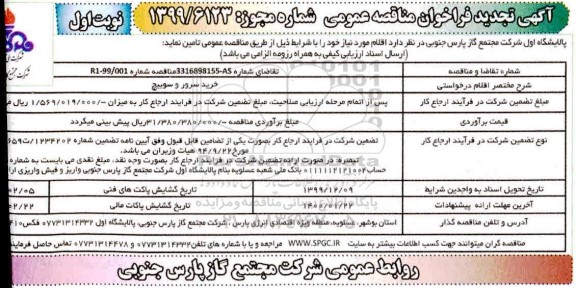 آگهی تجدید فراخوان مناقصه عمومی شماره مجوز: ۱۳۹۹/۶۱۲۳
نوبت اول
پالایشگاه اول شرکت مجتمع گاز پارس جنوبی در نظر دارد اقلام مورد نیاز خود را با شرایط ذیل از طریق مناقصه عمومی تامین نماید:
(ارسال اسناد ارزیابی کیفی به همراه رزومه الزامی می باشد)
شماره تقاضا و مناقصه
تقاضای شماره 3316898155-AS مناقصه شماره R1-99/001
شرح مختصر اقلام درخواستی
خرید سرور و سوییچ
مبلغ تضمین شرکت در فرآیند ارجاع کار
پس از اتمام مرحله ارزیابی صلاحیت، مبلغ تضمین شرکت در فرایند ارجاع کار به میزان -/۱/۵۶۹/۰۱۹/۰۰۰ ریال
قیمت برآوردی
مبلغ برآوردی مناقصه -/۳۱/۳۸۰/۳۸۰/۰۰۰ ریال پیش بینی میگردد
نوع تضمین شرکت در فرآیند ارجاع کار
تضمین شرکت در فرایند ارجاع کار بصورت یکی از تضامین قابل قبول وفق آیین نامه تضمین شماره ۱۲۳۴۰۲/ت
مورخ ۹۴/۹/۲۲ هیات وزیران می باشد.
تبصره: در صورت ارائه تضمین شرکت در فرایند ارجاع کار بصورت وجه نقد، مبلغ نقدی می بایست به شماره
حساب ۰۱۱۱۱۱۲۱۲۱۰۰۲ بانک ملی شعبه عسلویه بنام پالایشگاه اول شرکت مجتمع گاز پارس جنوبی واریز و فیش واریزی
تاریخ تحویل اسناد به واجدین شرایط
۱۳۹۹/۱۲/۰۹
تاریخ گشایش پاکات های فنی
۰۲/۰۵
آخرین مهلت ارائه پیشنهادات
تاریخ گشایش پاکات مالی
۰۲/۲۲
آدرس و تلفن مناقصه گذار
استان بوشهر، عسلویه، منطقه ویژه اقتصادی انرژی پارس، شرکت مجتمع گاز پارس جنوبی، پالایشگاه اول ۰۷۷۳۱۳۱۴۳۳۲ فکس
مناقصه گران میتوانند جهت کسب اطلاعات بیشتر به سایت WWW.SPGC.IR مراجعه و یا با شماره های تلفن ۰۷۷۳۱۳۱۴۳۳۲ و ۰۷۷۳۱۳۱۴۴۷۸ تماس حاصل فرمایند
روابط عمومی شرکت مجتمع گاز پارس جنوبی